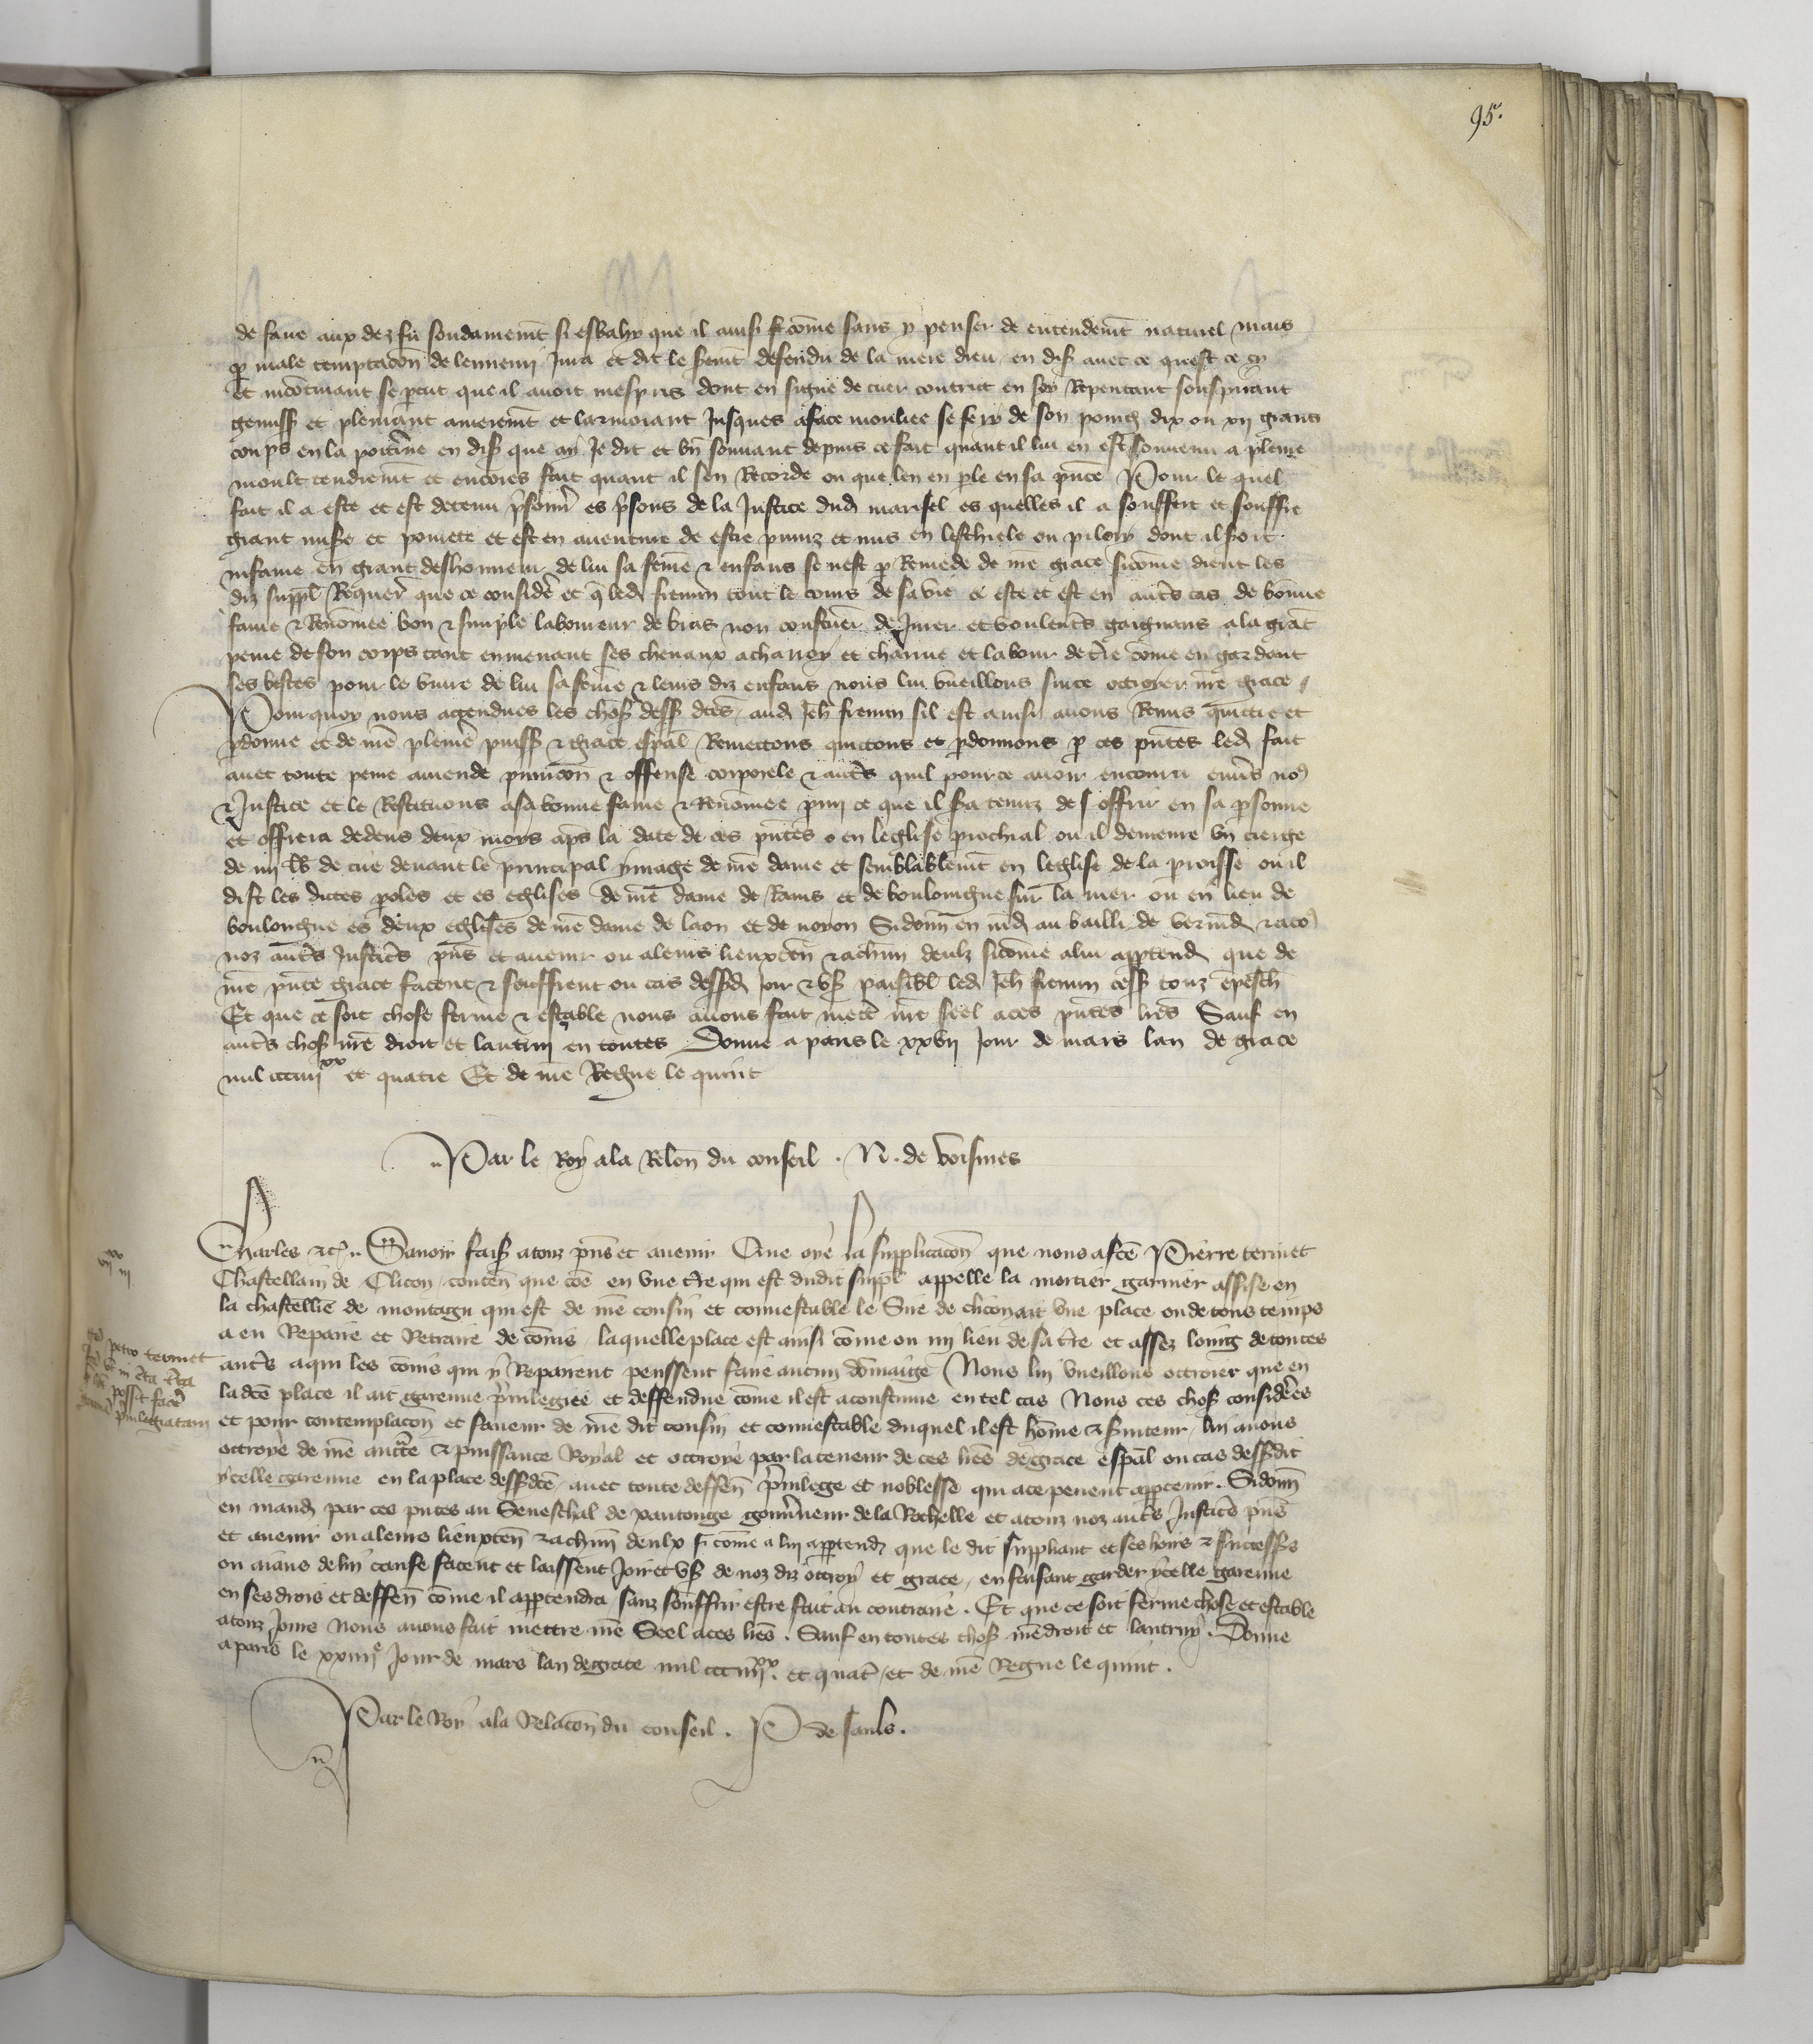 95.
de faire aux dez fu soudainemt si esbahy que il ainsi ſ cōme sans y penser de entendemt naturel mais
p male temptacōn de lennemy Jura et dit le sermt defendu de la mere dieu en diſ avec ce quest ce cy
Et incōtinant se percut que il avoit mespris dont en signe de cuer contrict en soy Repentant souspirant
gemiss et pleurant amerem̄t et larmoiant Jusques a face moulliee se fery de son poing dix ou xij grans
coups en la poitrine en diſ que ay Je dit et bn̄ souvant depuis ce fait quant il lui en est souvenu a pleure
moult tendrem̄t et encores fait quant il sen Recorde ou que len en ple en sa pn̄ce Pour le quel
fait il a este et est detenu prisonn̄ es prisons de la Justice dud marisel es quelles il a souffert et souffre
grant misere et povrete et est en aventure de estre puniz et mis en leschiele ou pilory dont il soit
infame en grant deshonneur de lui sa feme & enfans se nest p Remede de nr̄e grace sicōme dient les
diz suppl Requer̄ que ce considere et q̄ led firmin tout le cours de sa vie a este et est en autrs cas de bonne
fame & Renōmee bon & simple laboureur de bras non coustumr̄ de Jurer et voulentrs gaignans a la grāt
peine de son corps tant en menant ses chevaux a charroy et charrue et labour de tr̄e cōme en gardant
ses bestes pour le vivre de lui sa feme & leurs diz enfans nous lui vueillons sur ce ottroier nr̄e grace
Pourquoy nous attendues les choſ dess dcēs aud Jeh firmin sil est ainsi avons Remis quittie et
pdonne et de nr̄e pleine puiss & grace espāl Remettons quittons et pdonnons p ces pn̄tes led fait
avec toute peine amende punicōn & offense corporele & autrs quil pour ce avoir encouru envrs nos
& Justice et le Restituons a sa bonne fame & Renōmee pmi ce que il sera tenuz de soffrir en sa psonne
et offrera dedens deux moys aps la date de ces pn̄tes en leglise prochial ou il demeure un cierge
de iiij lb de cire devant le principal ymage de nr̄e dame et semblablemt en leglise de la proisse ou il
dist les dictes proles et es eglises de nr̄e dame de Rains et de bouloingne sur la mer ou en lieu de
boulongne es deux eglises de nr̄e dame de laon et de noyon Si donn̄ en mād au bailli de vermād & a tos
noz autrs Justicrs pn̄s et avenir ou a leurs lieuxten̄ & a chūn deulx sicōme a lui apptend que de
nr̄e pn̄te grace facent & seuffrent ou cas dessd Joir & uſ paisibl led Jeh firmin cess touz empesch
Et que ce soit chose ferme & estable nous avons fait mettre nr̄e seel a ces pn̄tes lrēs Sauf en
autrs choſ nr̄e droit et lautrui en toutes Donne a paris le xxvij Jour de mars lan de grace
mil ccciiijxx et quatre Et de nr̄e Regne le quint
Par le Roy a la Relon̄ du conseil . N . de voisines
Charles &c. Savoir faiſ a touz pn̄s et avenir Que oye la supplicacōn que nous a fce Pierre termet
Chastellain de Clicon conten̄ que cōe en une tr̄e qui est dudit suppl appelle la mortier garnier assise en
la chastellie de montagu qui est de nr̄e cousin et connestable le Sire de clicon ait une place ou de tous temps
a eu Repaire et Retraire de cōnis laquelle place est ainsi cōme ou my lieu de sa tr̄e et assez loing de toutes
autrs a qui les cōnis qui y Repairent peussent faire aucun dōmaige Nous lui vueillons ottroier que en
lad̄ce place il ait garenne privilegiee et deffendue cōme il est acoustume en tel cas Nous ces choſ considerees
et pour contemplacōn et faveur de nr̄e dit cousin et connestable duquel il est hōme & serviteur lui avons
ottroye de nr̄e auctte & puissance Royal et ottroye par la teneur de ces lrēs de grace espāl ou cas dessdit
ycelle garenne en la place dessdcē avec toute deffen̄ privilege et noblesse qui a ce pevent apptenir . Si donn̄
en mand par ces pn̄tes au Seneschal de xantonge gouv̄neur de la Rochelle et a touz noz autrs Justicrs pn̄s
et avenir ou a leurs lieuxten̄ & a chūn deulx si cōme a lui apptend que le dit suppliant et ses hoirs & successrs
ou aians de lui cause facent et laissent Joir et uſ de noz diz ottroy et grace, en faisant garder ycelle garenne
en ses drois et deffen̄ cōme il apptendra sanz souffrir estre fait au contraire . Et que ce soit ferme chose et estable
a touz Jours Nous avons fait mettre nr̄e Seel a ces lrēs . Sauf en toutes choſ nr̄e droit et lautruy . Donne
a paris le xxiiije Jour de mars lan de grace mil ccciiijxx. et quatr̄ et de nr̄e Regne le quint .
Par le Roy a la Relacōn du conseil . P de sauls .
petro termet
in cta tr̄ra
possit facē
privilegiatam